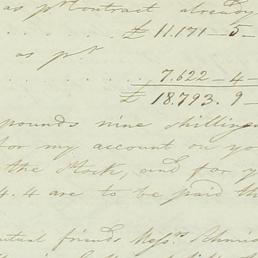 as pr Contract already
£ 11.171 – 5 –
as pr
7.622 – 4 –
£ 18.793. 9 –
pounds nine shillings
for my account on yo
the Stock, and for y
4.4 are to be paid th
mutual friends Messrs.